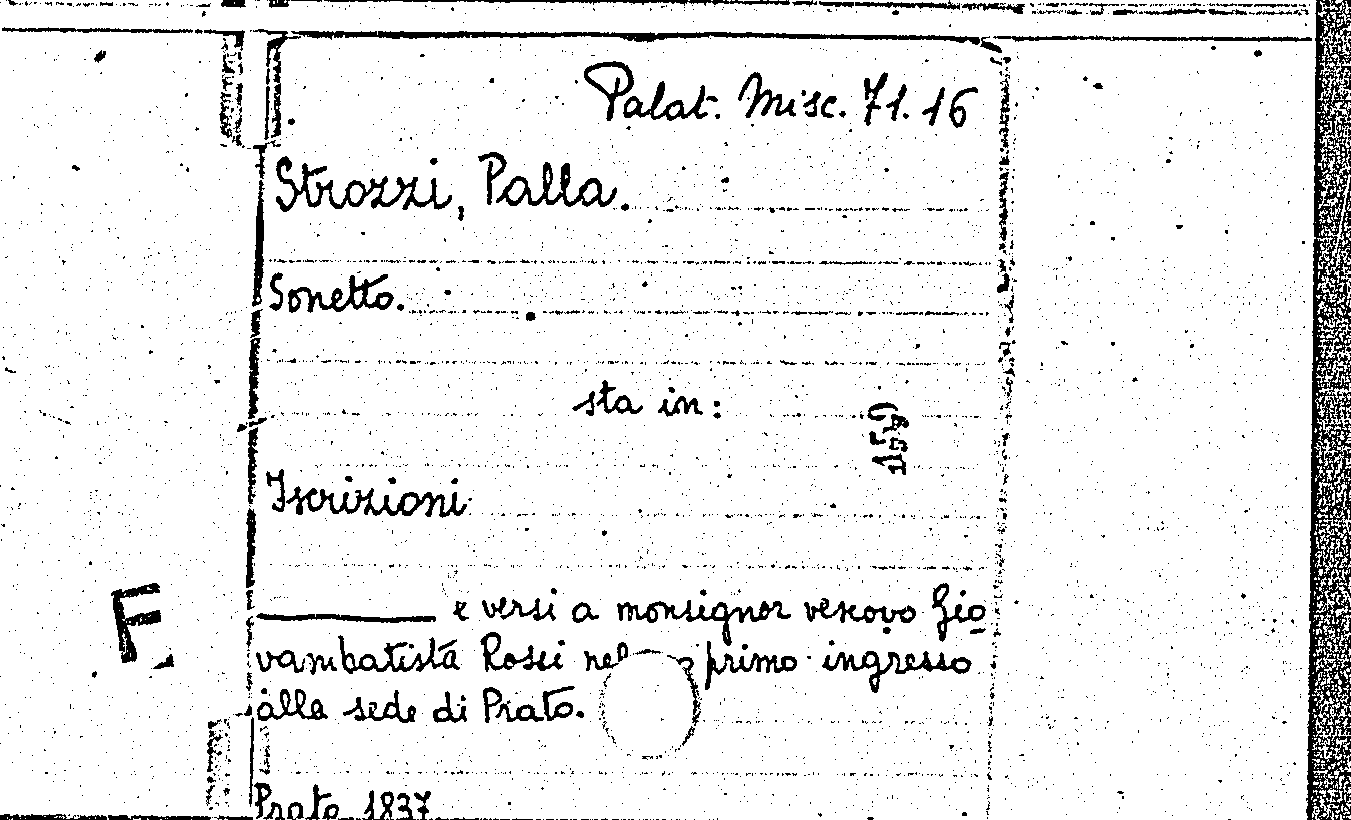 Palat. Misc. 71.16
Strozzi, Palla.
Sonetto.
sta in:
1559
Iscrizioni
F
e versi a monsignor vescovo Gio
vambatista Rossi nel primo ingresso
alla sede di Prato.
Prato 1837